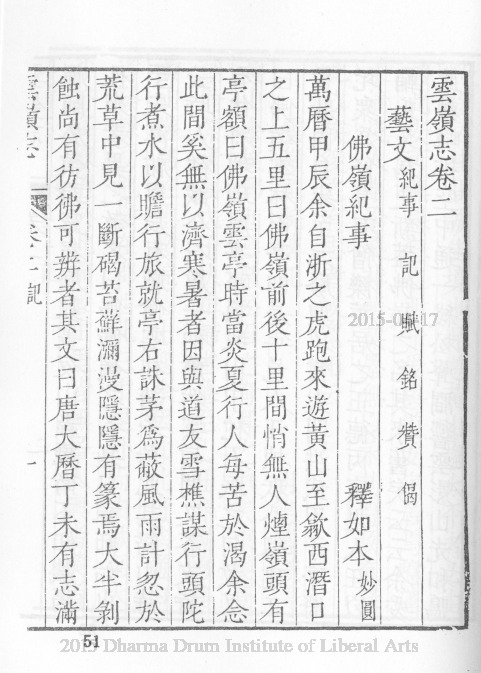 雲嶺志卷二
藝文 紀事 記 賦 銘 贊 偈
佛嶺紀事 釋如本 妙圓
萬曆甲辰余自浙之虎跑來遊黃山至歙西潛口
之上五里曰佛嶺前後十里間悄無人煙嶺頭有
亭額曰佛嶺雲亭時當炎夏行人每苦於渴余念
此間奚無以濟寒暑者因與道友雪樵謀行頭陀
行煮水以贍行旅就亭右誅茅為蔽風雨計忽於
荒草中見一斷碣苔蘚瀰漫隱隱有篆焉大半剝
蝕尚有彷彿可辨者其文曰唐大曆丁未有志滿
雲嶺志 卷二 記 一
2015-0 17
51
2015 Dharma Drum Institute of Liberal Arts